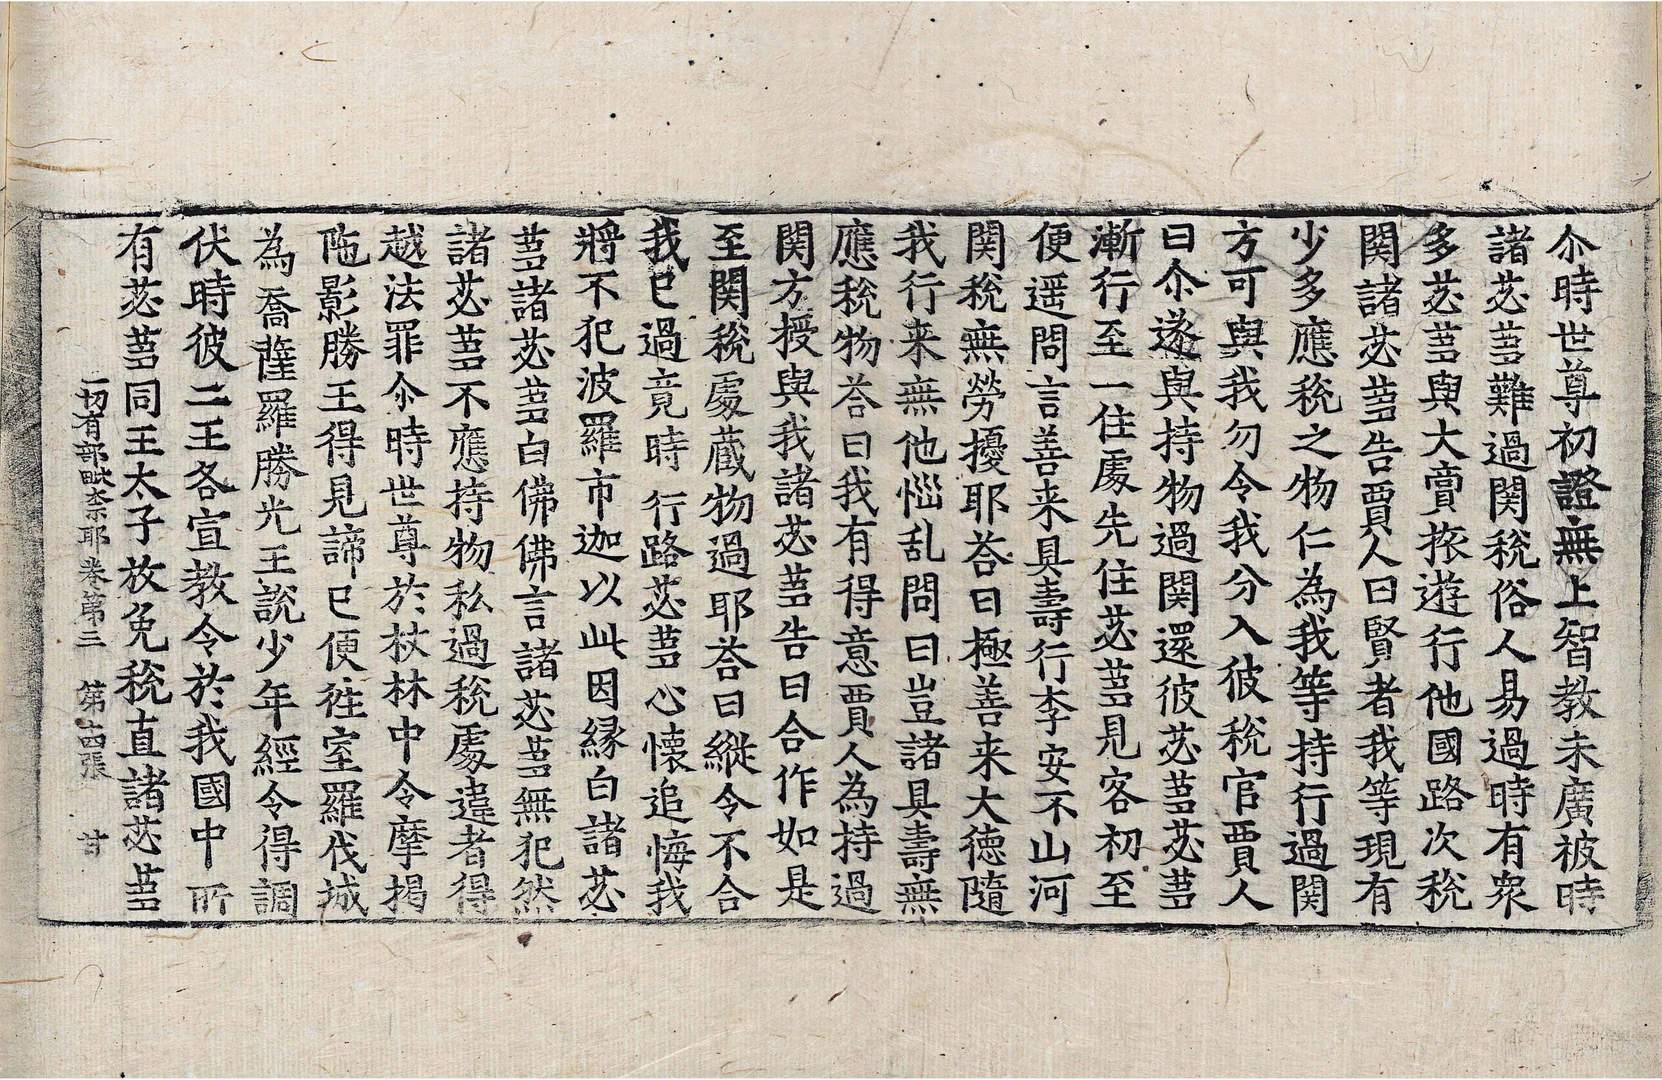 尒時世尊初證無上智教未廣被時
諸苾蒭難過関稅俗人易過時有衆
多苾蒭與大賣旅遊行他國路次稅
関諸苾蒭告賈人曰賢者我等現有
少多應稅之物仁為我等持行過関
方可與我勿令我分入彼稅官賈人
曰尒遂與持物過関還彼苾蒭苾蒭
漸行至一住處先住苾蒭見客初至
便遥問言善来具壽行李安不山河
関稅無勞擾耶荅曰極善来大德隨
我行来無他惱乱問曰豈諸具壽無
應稅物荅曰我有得意賈人為持過
関方授與我諸苾蒭告曰合作如是
至関稅處藏物過耶荅曰縱令不合
我已過竟時行路苾蒭心懷追悔我
將不犯波羅市迦以此因緣白諸苾
蒭諸苾蒭白佛佛言諸苾蒭無犯然
諸苾蒭不應持物私過稅處違者得
越法罪尒時世尊於杖林中令摩揭
陁影勝王得見諦已便往室羅伐城
為喬薩羅勝光王說少年經令得調
伏時彼二王各宣教令於我國中所
有苾蒭同王太子放免稅直諸苾蒭
一切有部毗奈耶卷第三 第十四張 甘